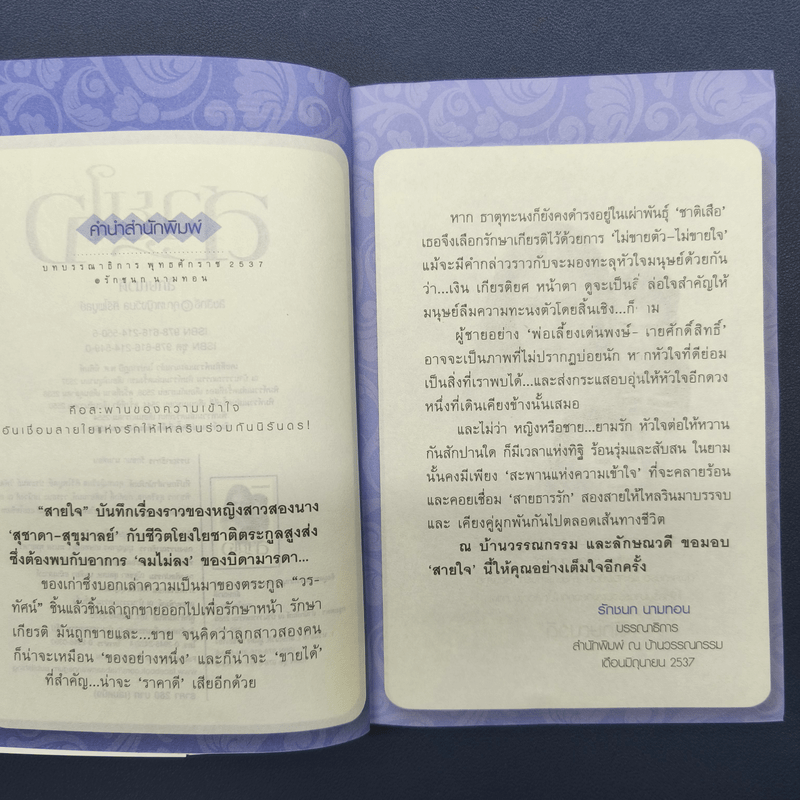 คำนำสำนักพิมพ์
บทบรรณาธิการ พุทธศักราช 2537
รักชนก นามทอน
คือสะพานของความเข้าใจ
อันเชื่อมสายใยแห่งรักให้ไหลรินร่วมกันนิรันดร!
“สายใจ” บันทึกเรื่องราวของหญิงสาวสองนาง
‘สุชาดา–สุขุมาลย์’ กับชีวิตโยงใยชาติตระกูลสูงส่ง
ซึ่งต้องพบกับอาการ ‘จมไม่ลง’ ของบิดามารดา...
ของเก่าซึ่งบอกเล่าความเป็นมาของตระกูล “วร-
ทัศน์” ชิ้นแล้วชิ้นเล่าถูกขายออกไปเพื่อรักษาหน้า รักษา
เกียรติ มันถูกขายและ...ขาย จนคิดว่าลูกสาวสองคน
ก็น่าจะเหมือน ‘ของอย่างหนึ่ง’ และก็น่าจะ ‘ขายได้’
ที่สำคัญ...น่าจะ ‘ราคาดี’ เสียอีกด้วย
หาก ธาตุทะนงก็ยังคงดำรงอยู่ในเผ่าพันธุ์ ‘ชาติเสือ’
เธอจึงเลือกรักษาเกียรติไว้ด้วยการ ‘ไม่ขายตัว–ไม่ขายใจ’
แม้จะมีคำกล่าวราวกับจะมองทะลุหัวใจมนุษย์ด้วยกัน
ว่า...เงิน เกียรติยศ หน้าตา ดูจะเป็นสิ่ ล่อใจสำคัญให้
มนุษย์ลืมความทะนงตัวโดยสิ้นเชิง...ก็ าม
ผู้ชายอย่าง ‘พ่อเลี้ยงเด่นพงษ์– ายศักดิ์สิทธิ์’
อาจจะเป็นภาพที่ไม่ปรากฏบ่อยนัก ห กหัวใจที่ดีย่อม
เป็นสิ่งที่เราพบได้...และส่งกระแสอบอุ่นให้หัวใจอีกดวง
หนึ่งที่เดินเคียงข้างนั้นเสมอ
และไม่ว่า หญิงหรือชาย...ยามรัก หัวใจต่อให้หวาน
กันสักปานใด ก็มีเวลาแห่งทิฐิ ร้อนรุ่มและสับสน ในยาม
นั้นคงมีเพียง ‘สะพานแห่งความเข้าใจ’ ที่จะคลายร้อน
และคอยเชื่อม ‘สายธารรัก’ สองสายให้ไหลรินมาบรรจบ
และ เคียงคู่ผูกพันกันไปตลอดเส้นทางชีวิต
ณ บ้านวรรณกรรม และลักษณวดี ขอมอบ
‘สายใจ’ นี้ให้คุณอย่างเต็มใจอีกครั้ง
รักชนก นามทอน
บรรณาธิการ
สำนักพิมพ์ ณ บ้านวรรณกรรม
เดือนมิถุนายน 2537